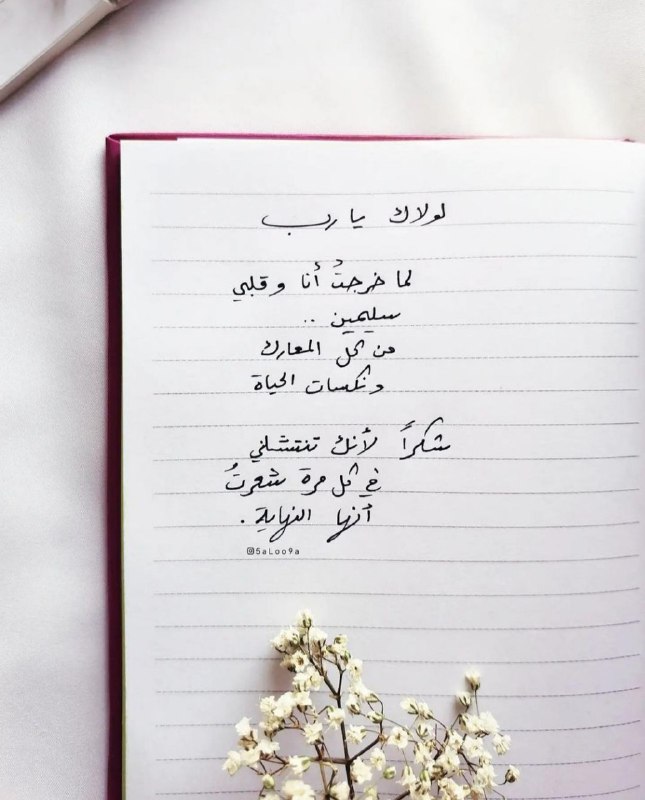 لولاك يا رب
لما خرجتُ أنا وقلبي
سليمين ..
من كل المعارك
ونكسات الحياة
شكراً لأنك تنتشلني
في كل مرة شعرتُ
أنها النهاية .
@5aLoo9a